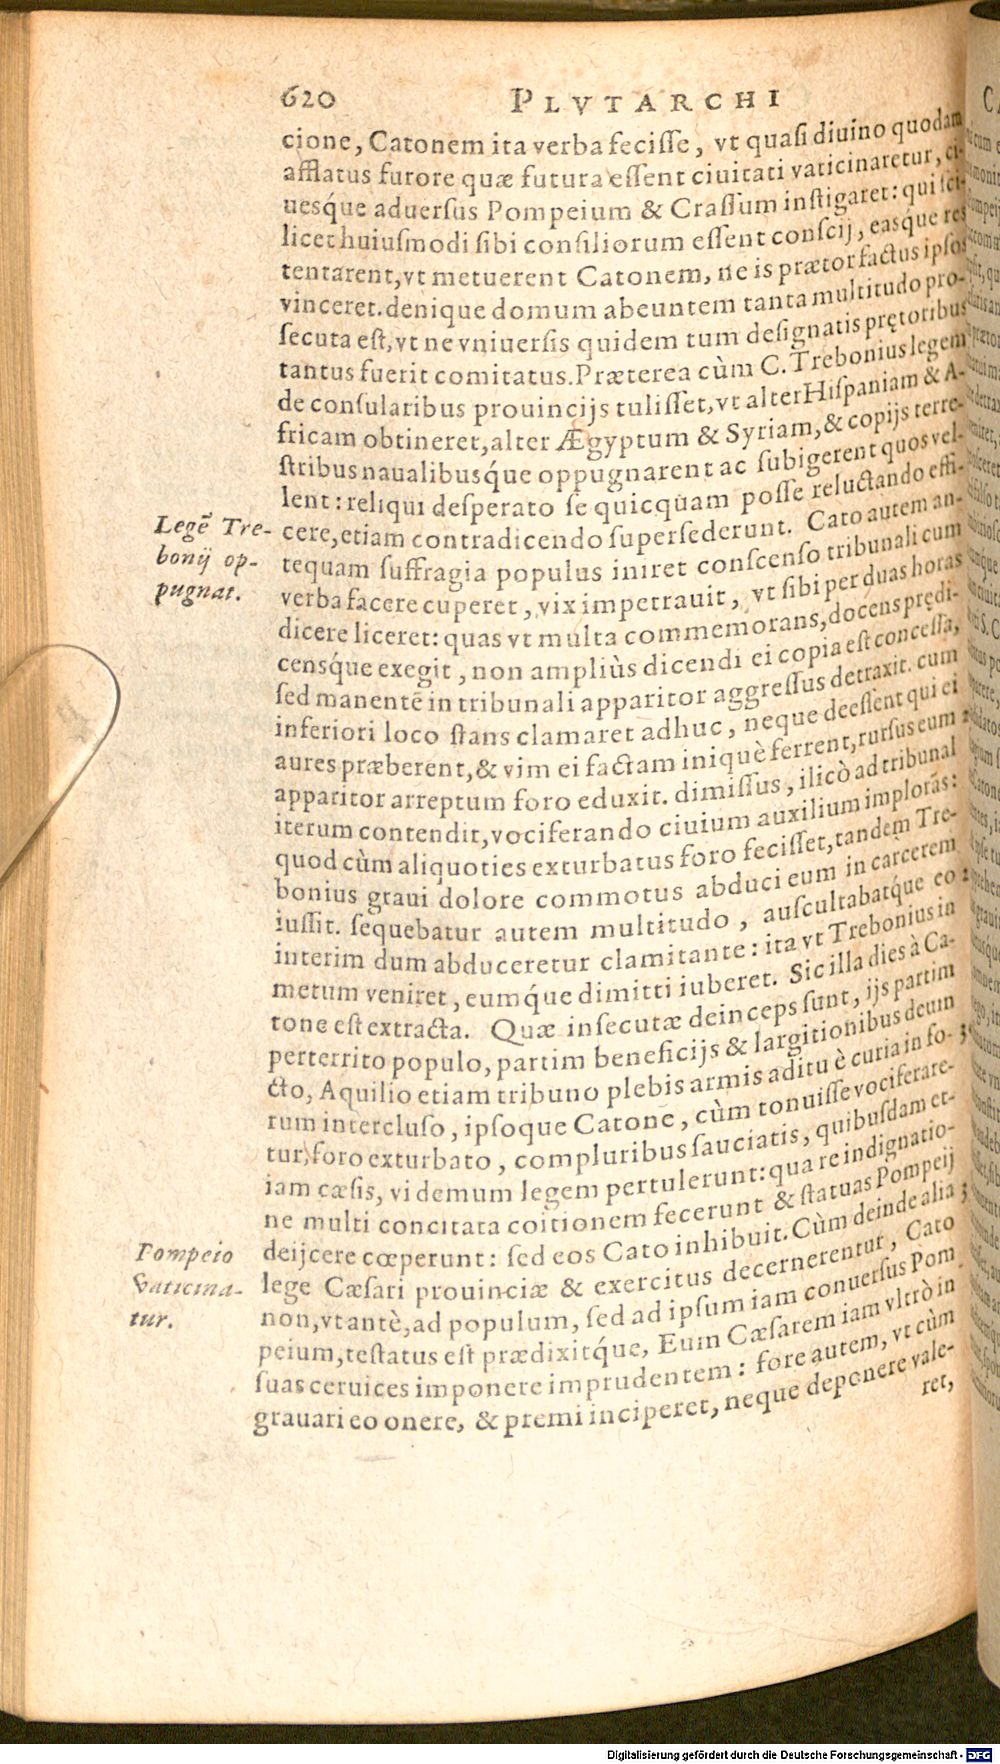 620 PLVTARCHI
cione, Catonem ita verba fecisse, vt quasi diuino quodam
afflatus furore quæ futura essent ciuitati vaticinaretur, ci-
uesq́ue aduersus Pompeium & Crassum instigaret: qui sci-
licet huiusmodi sibi consiliorum essent conscij, easque res
tentarent, vt metuerent Catonem, ne is prætor factus ipsos
vinceret. denique domum abeuntem tanta multitudo pro-
secuta est, vt ne vniuersis quidem tum designatis prętoribus
tantus fuerit comitatus. Præterea cùm C. Trebonius legem
de consularibus prouincijs tulisset, vt alter Hispaniam & A-
fricam obtineret, alter Ægyptum & Syriam, & copijs terre-
stribus naualibusq́ue oppugnarent ac subigerent quos vel-
lent: reliqui desperato se quicquam posse reluctando effi-
Legē Tre-
bonij op-
pugnat.
cere, etiam contradicendo supersederunt. Cato autem an-
tequam suffragia populus iniret conscenso tribunali cum
verba facere cuperet, vix impetrauit, vt sibi per duas horas
dicere liceret: quas vt multa commemorans, docens prędi-
censq́ue exegit, non ampliùs dicendi ei copia est concessa,
sed manentē in tribunali apparitor aggressus detraxit. cum
inferiori loco stans clamaret adhuc, neque deessent qui ei
aures præberent, & vim ei factam iniquè ferrent, rursus eum
apparitor arreptum foro eduxit. dimissus, ilicò ad tribunal
iterum contendit, vociferando ciuium auxilium implorās:
quod cùm aliquoties exturbatus foro fecisset, tandem Tre-
bonius graui dolore commotus abduci eum in carcerem
iussit. sequebatur autem multitudo, auscultabatq́ue eo
interim dum abduceretur clamitante: ita vt Trebonius in
metum veniret, eumq́ue dimitti iuberet. Sic illa dies à Ca-
tone est extracta. Quæ insecutæ deinceps sunt, ijs partim
perterrito populo, partim beneficijs & largitionibus deuin
cto, Aquilio etiam tribuno plebis armis aditu è curia in fo-
rum intercluso, ipsoque Catone, cùm tonuisse vociferare-
tur, foro exturbato, compluribus sauciatis, quibusdam et-
iam cæsis, vi demum legem pertulerunt: qua re indignatio-
ne multi concitata coitionem fecerunt & statuas Pompeij
Pompeio
vaticina-
tur.
deijcere cœperunt: sed eos Cato inhibuit. Cùm deinde alia
lege Cæsari prouinciæ & exercitus decernerentur, Cato
non, vt antè, ad populum, sed ad ipsum iam conuersus Pom
peium, testatus est prædixitq́ue, Eum Cæsarem iam vltrò in
suas ceruices imponere imprudentem: fore autem, vt cùm
grauari eo onere, & premi inciperet, neque deponere vale-
ret,
Digitalisierung gefördert durch die Deutsche Forschungsgemeinschaft - DFG